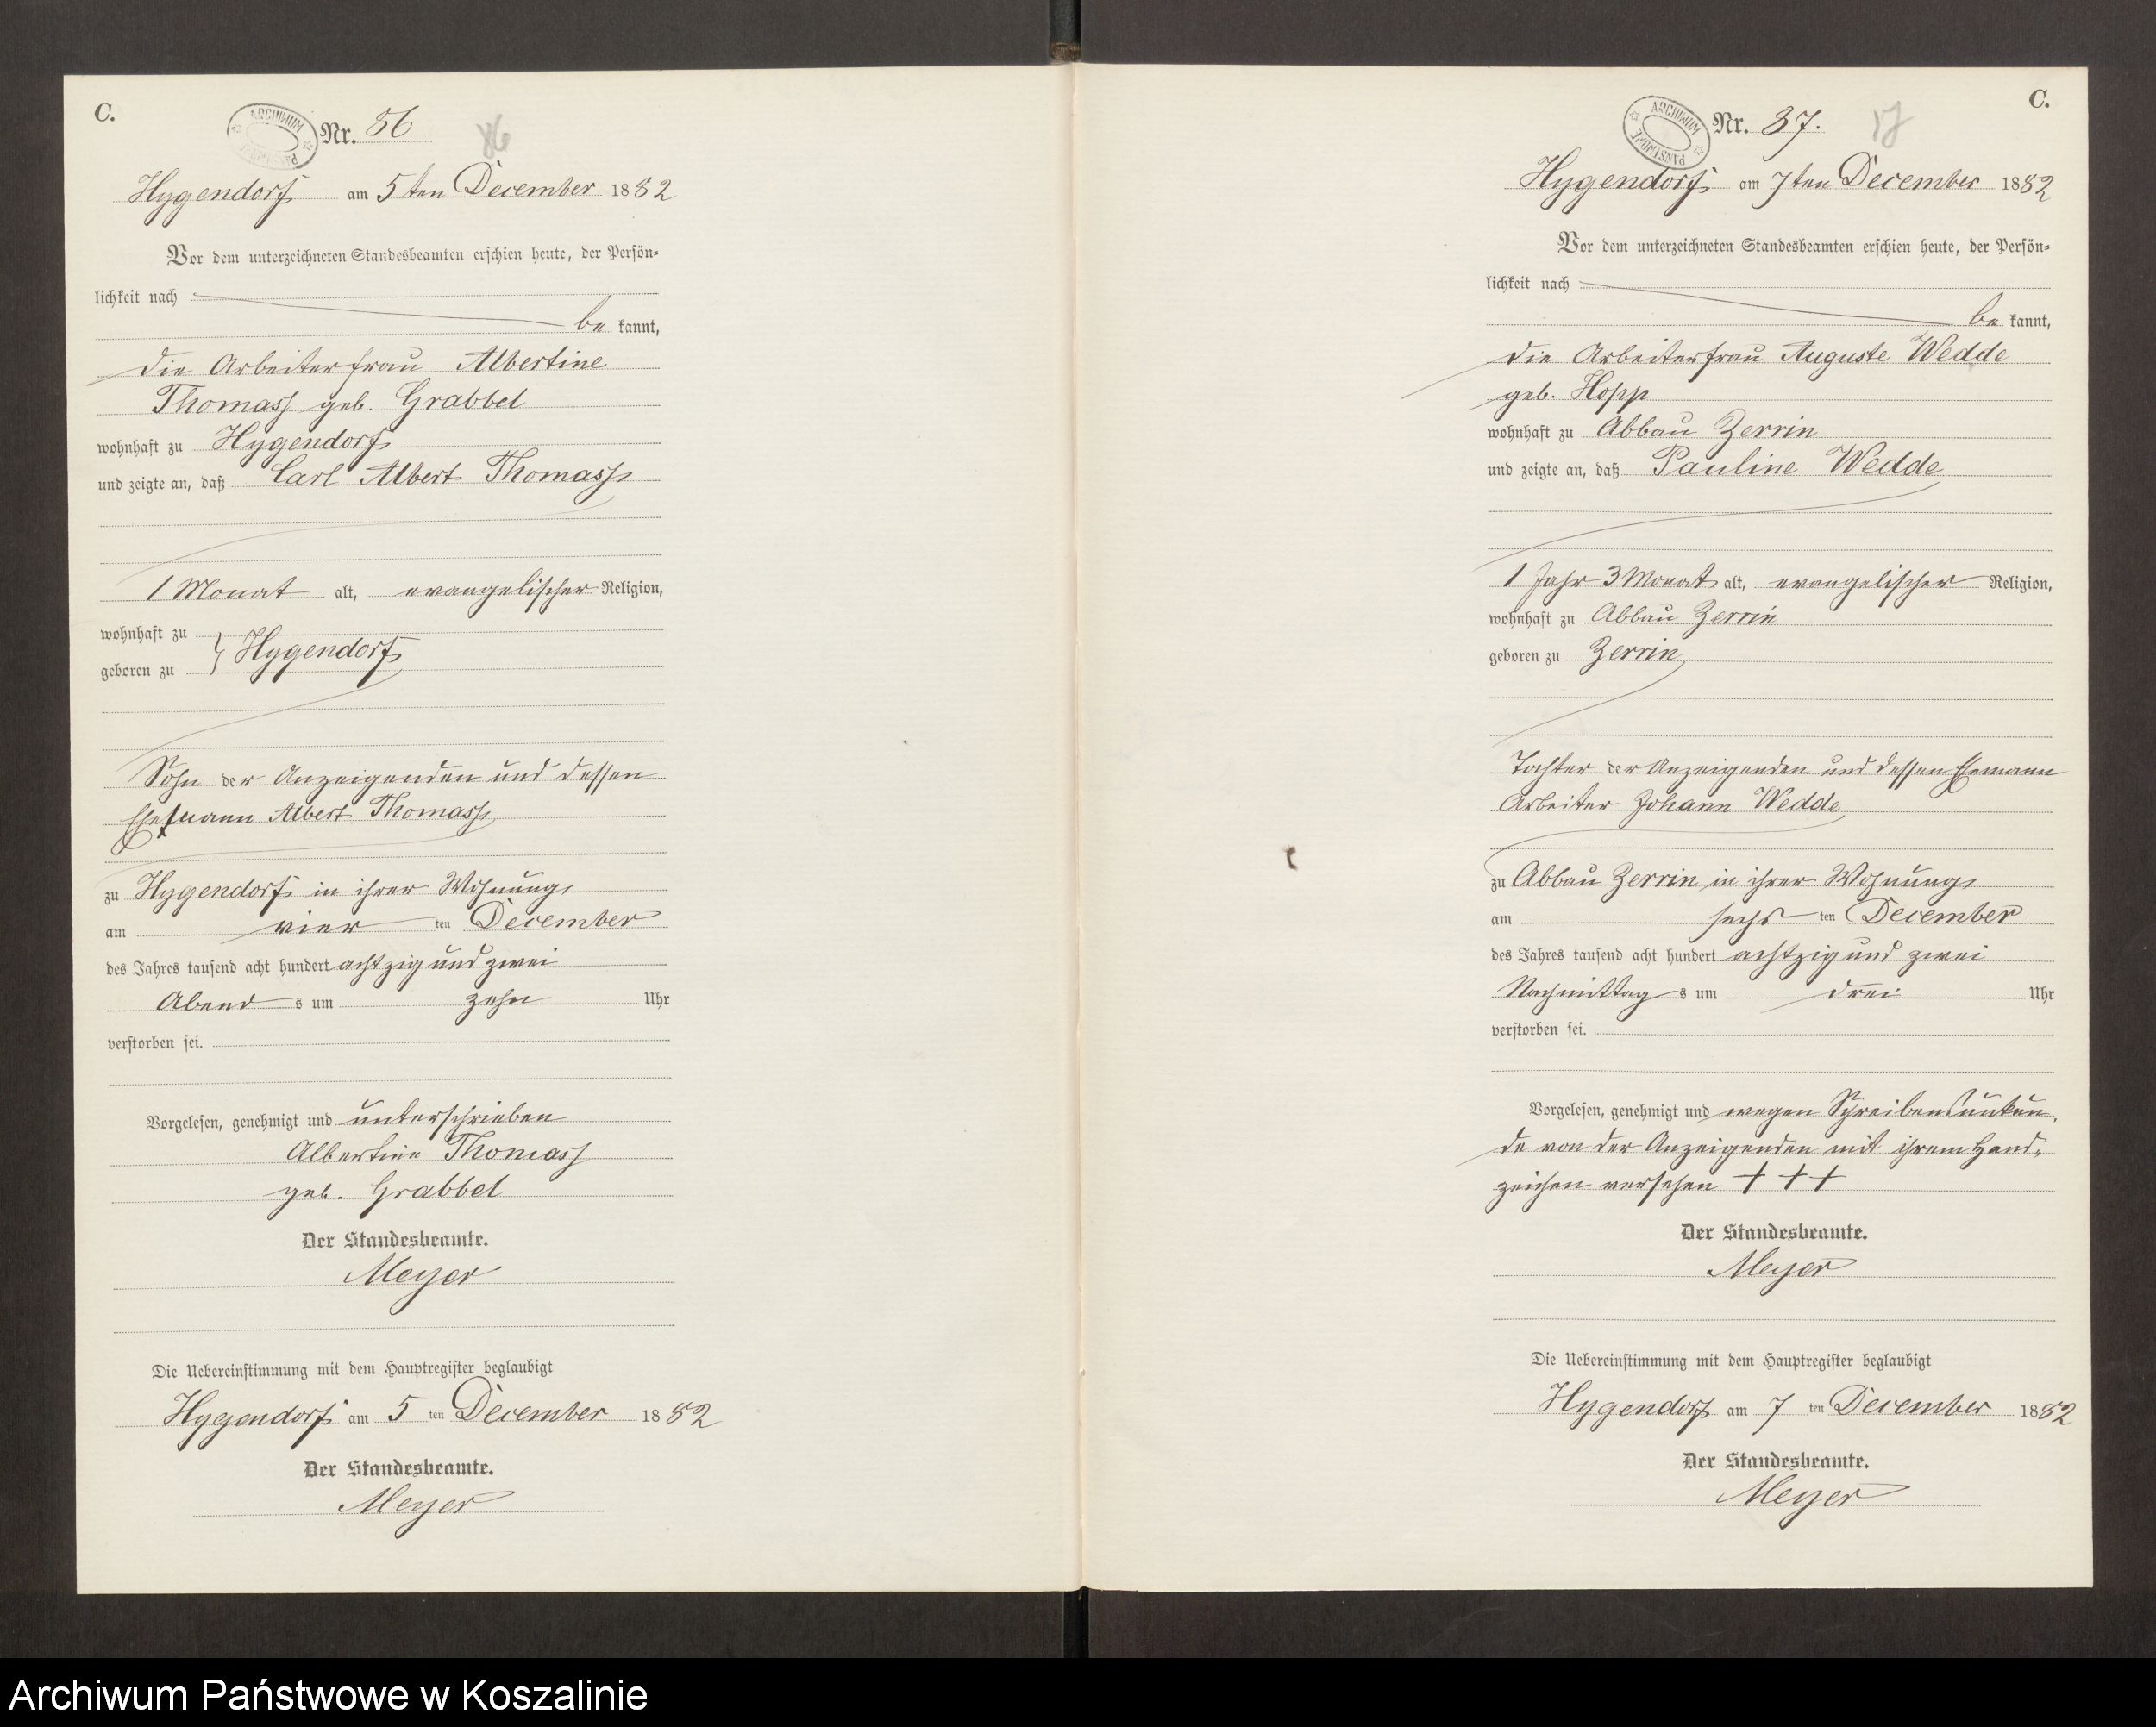 C.
ARCHIWUM PAŃSTWOWE
Nr. 86
86
Hygendorf am 5ten December 1882
Vor dem unterzeichneten Standesbeamten erschien heute, der Persön=
lichkeit nach
be kannt,
die Arbeiterfrau Albertine
Thomass geb. Grabbel
wohnhaft zu Hygendorf
und zeigte an, daß Carl Albert Thomass
1 Monat alt, evangelischer Religion,
wohnhaft zu
geboren zu } Hygendorf
Sohn der Anzeigenden und dessen
Ehemann Albert Thomass
zu Hygendorf in ihrer Wohnung
am vier ten December
des Jahres tausend acht hundert achtzig und zwei
Abend s um zehn Uhr
verstorben sei.
Vorgelesen, genehmigt und unterschrieben
Albertine Thomass
geb. Grabbel
Der Standesbeamte.
Meyer
Die Uebereinstimmung mit dem Hauptregister beglaubigt
Hygendorf am 5 ten December 1882
Der Standesbeamte.
Meyer
C.
ARCHIWUM PAŃSTWOWE
Nr. 87.
Hygendorf am 7ten December 1882
Vor dem unterzeichneten Standesbeamten erschien heute, der Persön=
lichkeit nach
be kannt,
die Arbeiterfrau Auguste Wedde
geb. Hopp
wohnhaft zu Abbau Zerrin
und zeigte an, daß Pauline Wedde
1 Jahr 3 Monat alt, evangelischer Religion,
wohnhaft zu Abbau Zerrin
geboren zu Zerrin
Tochter der Anzeigenden und dessen Ehemann
Arbeiter Johann Wedde
zu Abbau Zerrin in ihrer Wohnung
am sechs ten December
des Jahres tausend acht hundert achtzig und zwei
Nachmittag s um drei Uhr
verstorben sei.
Vorgelesen, genehmigt und wegen Schreibensunkun,
de von der Anzeigenden mit ihrem Hand,,
zeichen versehen + + +
Der Standesbeamte.
Meyer
Die Uebereinstimmung mit dem Hauptregister beglaubigt
Hygendorf am 7 ten December 1882
Der Standesbeamte.
Meyer
Archiwum Państwowe w Koszalinie